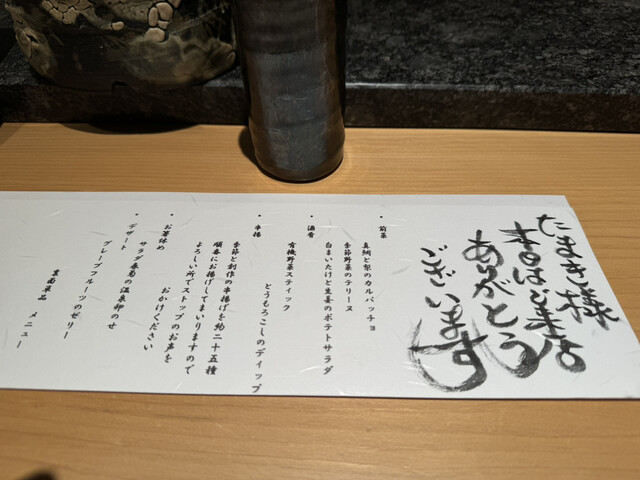 たまき様
本日はご来店
ありがとう
ございます
・ 前菜
真鯛と梨のカルパッチョ
季節野菜のテリーヌ
・ 酒肴
白まいたけと生姜のポテトサラダ
有機野菜スティック
とうもろこしのディップ
・ 串揚
季節と創作の串揚げを約二十五種
順番にお揚げしてまいりますので
よろしい所でストップのお声を
おかけください
・ お箸休め
サラダ春菊の温泉卵のせ
・ デザート
グレープフルーツのゼリー
メニュー